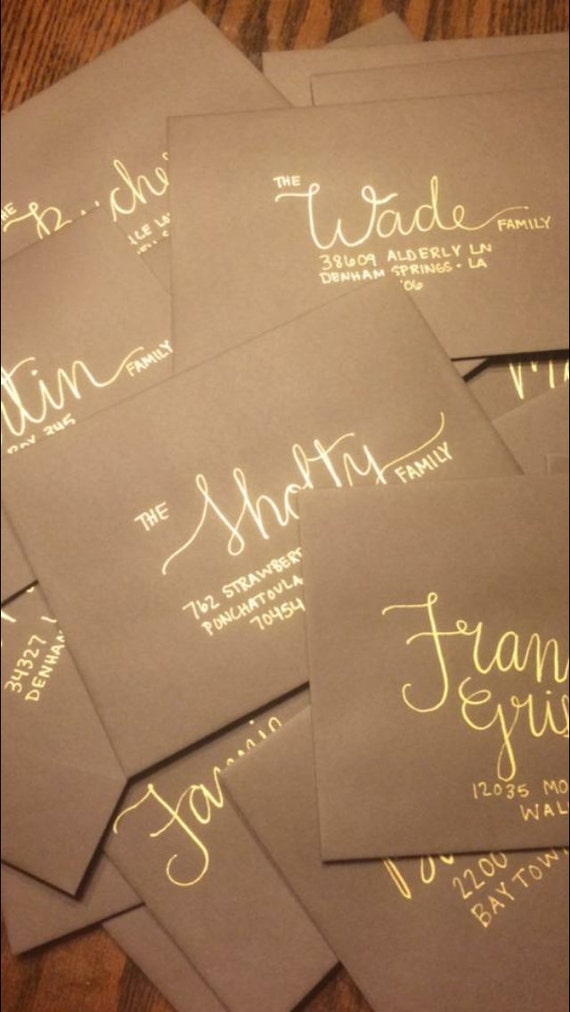 THE
Wade FAMILY
38609 ALDERLY LN
DENHAM SPRINGS · LA
'06
THE
tin FAMILY
BOX 345
THE Sholty FAMILY
762 STRAWBER
PONCHATOULA
70454
34327
DENHAM
Fran
Gris
12035 MO
WAL
2200
BAYTOW